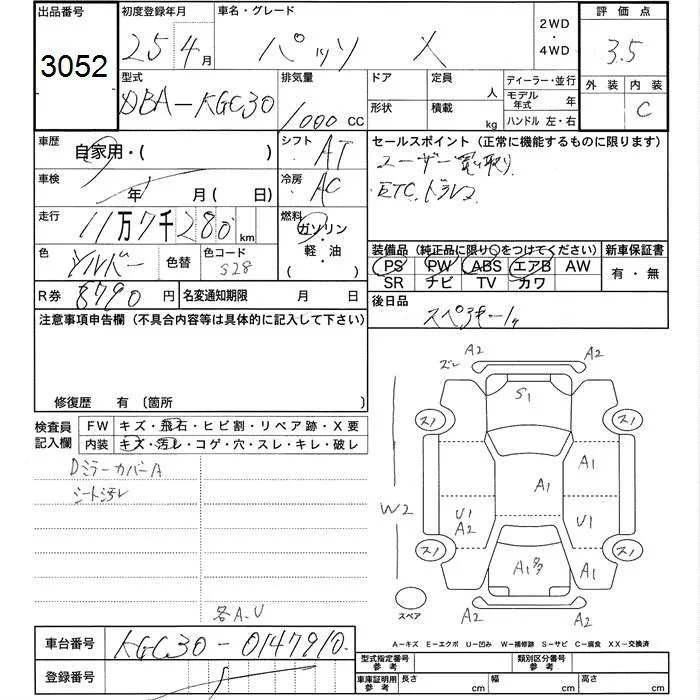 出品番号 初度登録年月 車名・グレード 2WD・4WD 評価点
3052 25 4月 パッソ X 3.5
型式 排気量 ドア 定員 人 ディーラー・並行 外装 内装
DBA-KGC30 1000 CC 形状 積載 kg モデル年式 年 C
ハンドル 左・右
車歴 自家用・( ) シフト AT セールスポイント (正常に機能するものに限ります)
車検 年 月(日) 冷房 AC ユーザー買い取り
ETC.ドラレコ
走行 11万7千280km 燃料 ガソリン・軽油・( )
色 シルバー 色替 色コード S28 装備品 (純正品に限り○をつけてください) 新車保証書
PS PW ABS エアB AW 有・無
SR ナビ TV カワ
R券 8790円 名変通知期限 月 日 後日品
スペアキー
注意事項申告欄 (不具合内容等は具体的に記入して下さい)
修復歴 有 〔箇所
検査員記入欄 FW キズ・飛石・ヒビ割・リペア跡・X要
内装 キズ・汚レ・コゲ・穴・スレ・キレ・破レ
Dミラーカバー A
シート汚レ
各A.U
ズレ A2 A2
S1
ス1 ス1
A1
A1
W2 U1 A2 U1
ス1 ス1
A1多 A1
スペア A2 A2
A-キズ E-エクボ U-凹み W-補修跡 S-サビ C-腐食 XX-交換済
車台番号 KGC30-0147910
登録番号
型式指定番号 参考 類別区分番号 参考
車庫証明用 参考 長さ cm 幅 cm 高さ cm